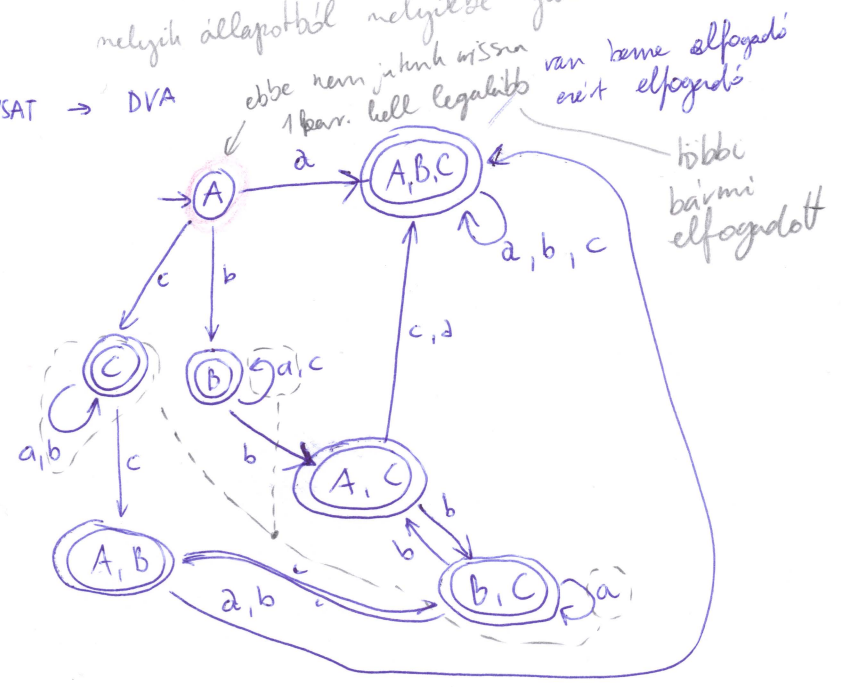 melyik állapotból melyikbe
SAT → DVA
ebbe nem jutunk vissza
1 kar. kell legalább
van benne elfogadó
ezért elfogadó
többi
bármi
elfogadott
A
a
A,B,C
a, b, c
c
b
c, a
C
a,b
B
a, c
c
b
A, C
b
b
A, B
a, b
c
c
B, C
a